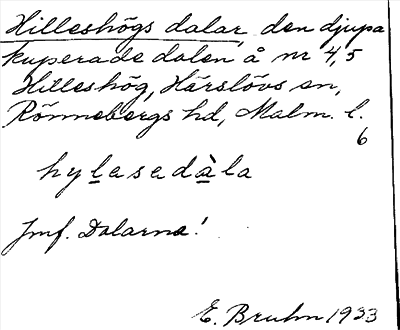 Hilleshögs dalar, den djupa
kuperade dalen å nr 4, 5
Hilleshög, Härslövs sn,
Rönnebergs hd, Malm. l.
6
hylesedàla
Jmf. Dalarna!
E. Bruhn 1933